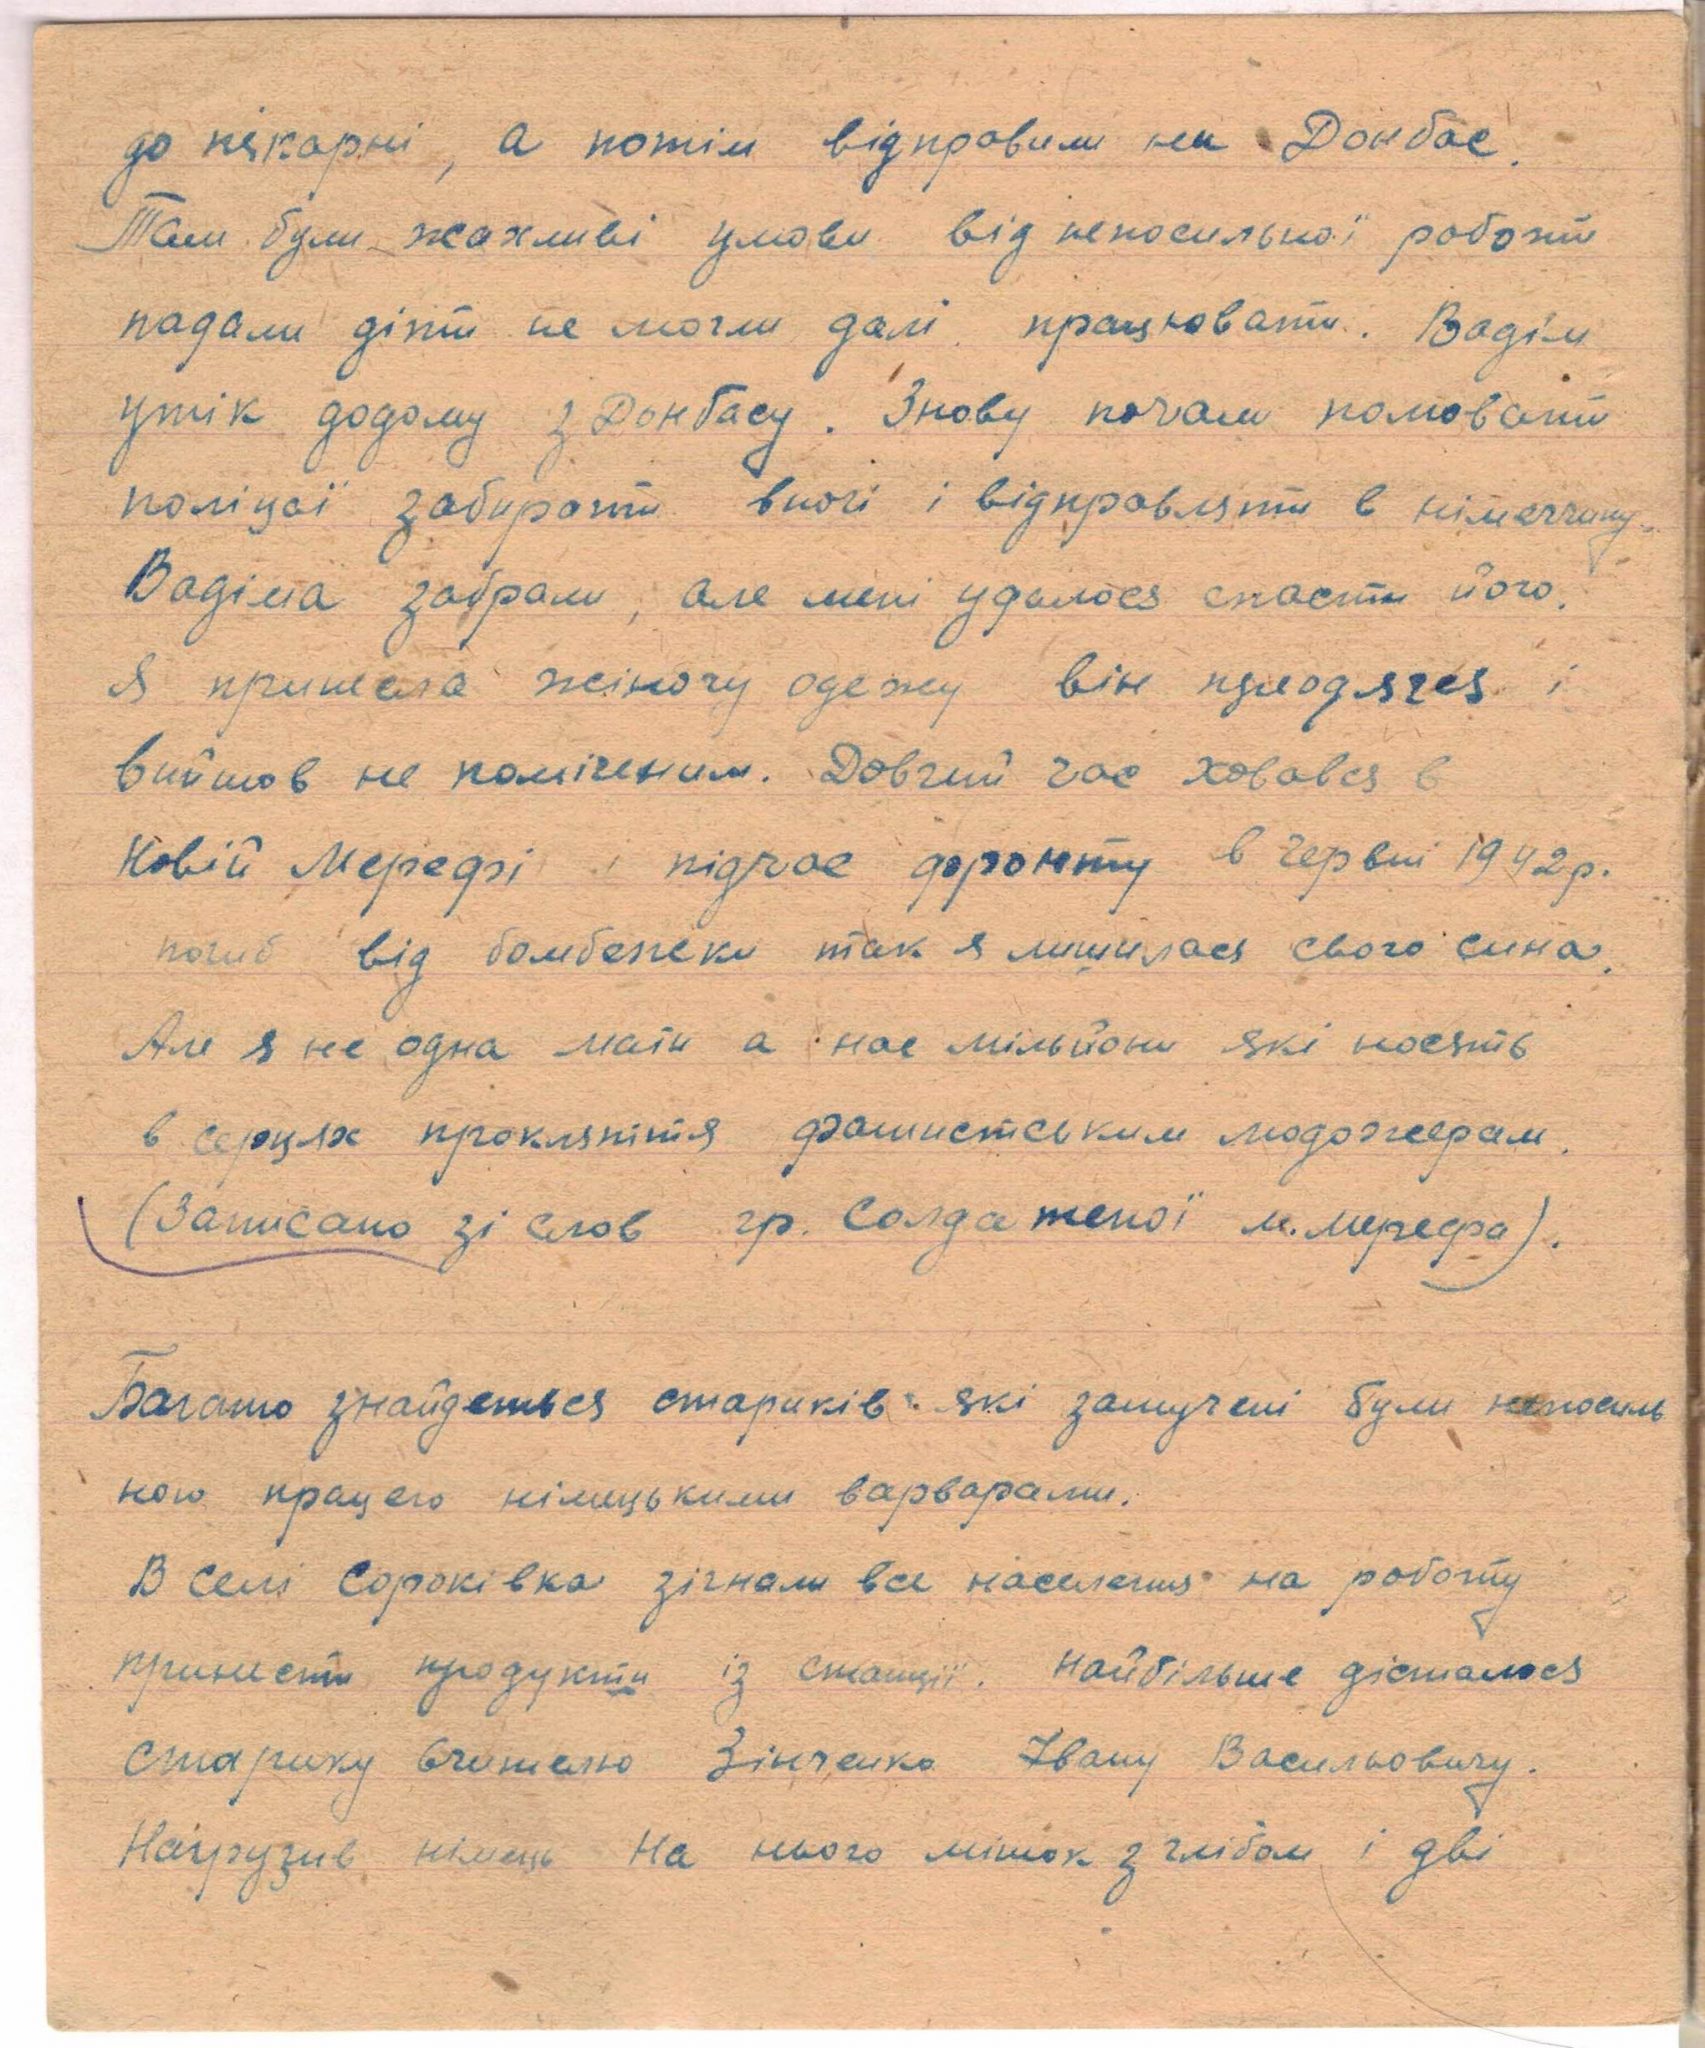 до пікарні, а потім відправили на Донбас.
Там були жахливі умови від непосильної роботи
падали діти не могли далі працювати. Вадім
утік додому з Донбасу. Знову почали полювати
поліцаї забирати вночі і відправляти в німеччину.
Вадіма забрали, але мені удалося спасти його.
Я принесла жіночу одежу він приодягся і
вийшов не поміченим. Довгий час ховався в
Новій Мерефі і підчас фронту в червні 1942р.
погиб від бомбежки так я лишилася свого сина.
Але я не одна мати а нас мільйони які носять
в серцях прокляття фашистським людожерам.
(Записано зі слов гр. Солдатеної м. Мерефа).
Багато знайдеться стариків які замучені були непосиль
ною працею німецькими варварами.
В селі Сороківка зігнали все населення на роботу
принести продукти із станції. Найбільше дісталося
старику вчителю Зінченко Івану Васильовичу.
Нагрузив німець на нього мішок з хлібом і дві